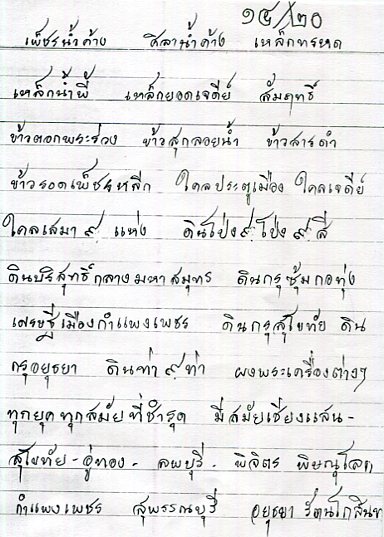 ๑๕/๒๐
เพ็ชรน้ำค้าง ศิลาน้ำค้าง เหล็กทรหด
เหล็กน้ำพี้ เหล็กยอดเจดีย์ สัมฤทธิ์
ข้าวตอกพระร่วง ข้าวสุกลอยน้ำ ข้าวสารดำ
ข้าวรอดเพ็ชรหลีก ไคลประตูเมือง ไคลเจดีย์
ไคลเสมา ๙ แห่ง ดินโป่ง ๙ โป่ง ๙ สี
ดินบริสุทธิ์กลางมหาสมุทร ดินกรุซุ้มกอทุ่ง
เศรษฐีเมืองกำแพงเพชร ดินกรุสุโขทัย ดิน
กรุอยุธยา ดินท่า ๙ ท่า ผงพระเครื่องต่างๆ
ทุกยุคทุกสมัยที่ชำรุด มีสมัยเชียงแสน -
สุโขทัย - อู่ทอง - ลพบุรี - พิจิตร พิษณุโลก
กำแพงเพชร สุพรรณบุรี อยุธยา รัตนโกสินท